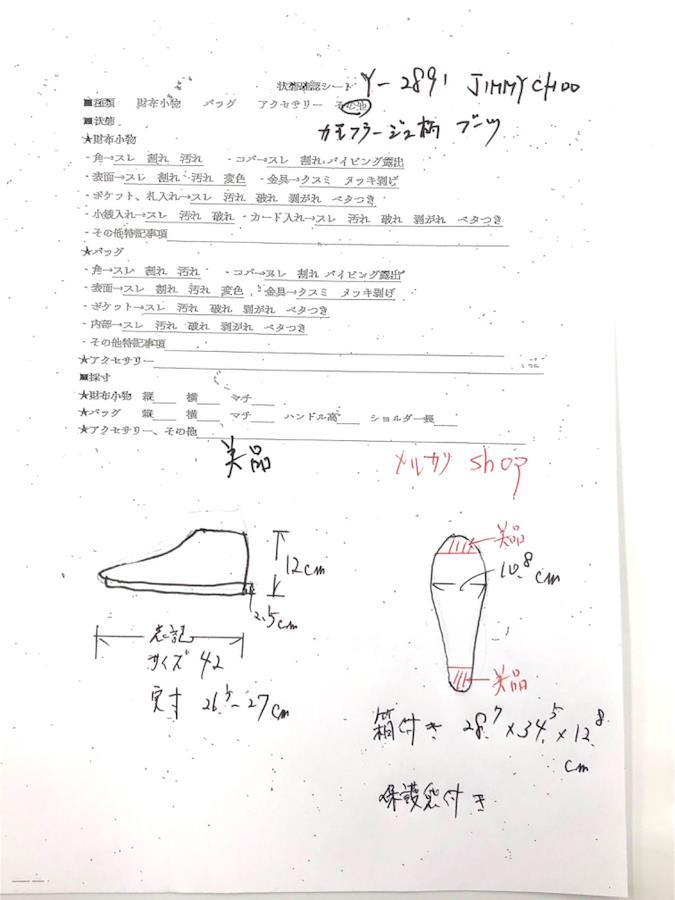 状態確認シート Y-2891 JIMMY CHOO
■種類 財布小物 バッグ アクセサリー その他
■状態 カモフラージュ柄 ブーツ
★財布小物
・角→スレ 割れ 汚れ ・コバ→スレ 割れ パイピング露出
・表面→スレ 割れ 汚れ 変色 ・金具→クスミ メッキ剥げ
・ポケット、札入れ→スレ 汚れ 破れ 剥がれ ベタつき
・小銭入れ→スレ 汚れ 破れ ・カード入れ→スレ 汚れ 破れ 剥がれ ベタつき
・その他特記事項
★バッグ
・角→スレ 割れ 汚れ ・コバ→スレ 割れ パイピング露出
・表面→スレ 割れ 汚れ 変色 ・金具→クスミ メッキ剥げ
・ポケット→スレ 汚れ 破れ 剥がれ ベタつき
・内部→スレ 汚れ 破れ 剥がれ ベタつき
・その他特記事項
★アクセサリー
■採寸
★財布小物 縦 横 マチ
★バッグ 縦 横 マチ ハンドル高 ショルダー長
★アクセサリー、その他
美品
メルカリ shop
12cm
2.5cm
表記
サイズ 42
実寸 26.5~27cm
美品
10.8cm
美品
箱付き 28.7×34.5×12.8
cm
保護袋付き